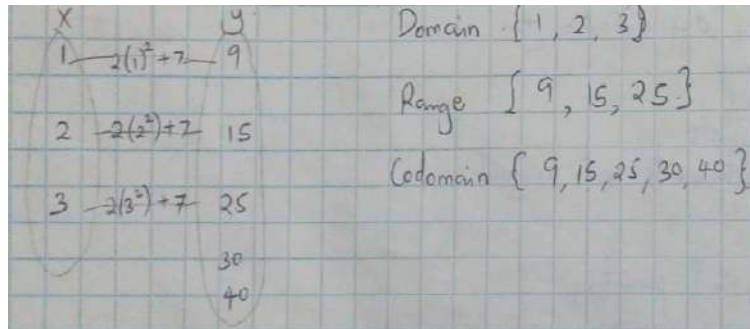 X y
1 2(1)²+7 9
2 2(2²)+7 15
3 2(3²)+7 25
30
40
Domain {1, 2, 3}
Range {9, 15, 25}
Codomain {9, 15, 25, 30, 40}